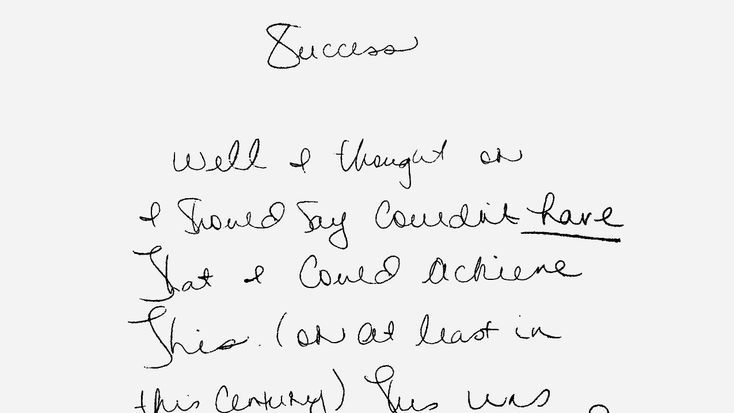 Success
Well I thought or
I should say Couldn't have
That I Could achieve
This. (or at least in
this Century) This was